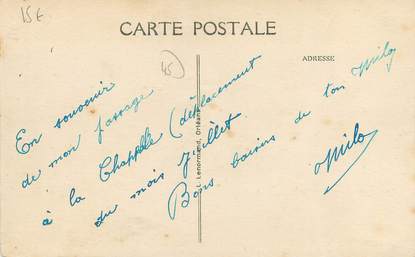 15€
CARTE POSTALE
45
ADRESSE
En souvenir
de mon passage
à la Chapelle (déplacement
du mois Juillet.
Bons baisers de ton Milo
Milo
Lenormand, Orléans